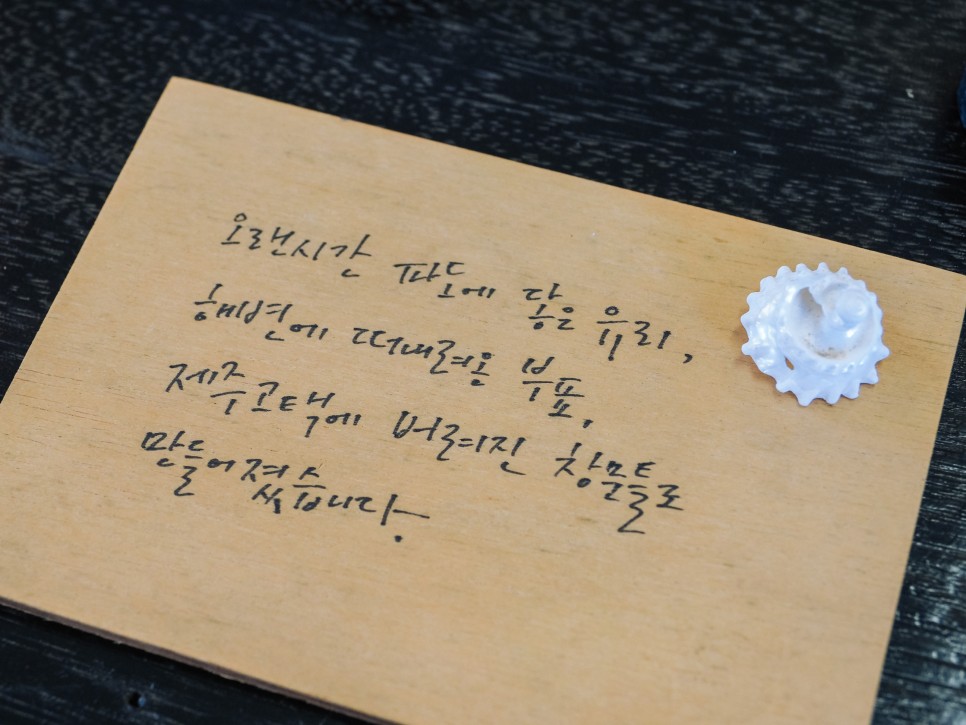 오랜시간 파도에 닳은 유리,
해변에 떠내려온 부표,
제주고택에 버려진 창문틀로
만들어졌습니다.